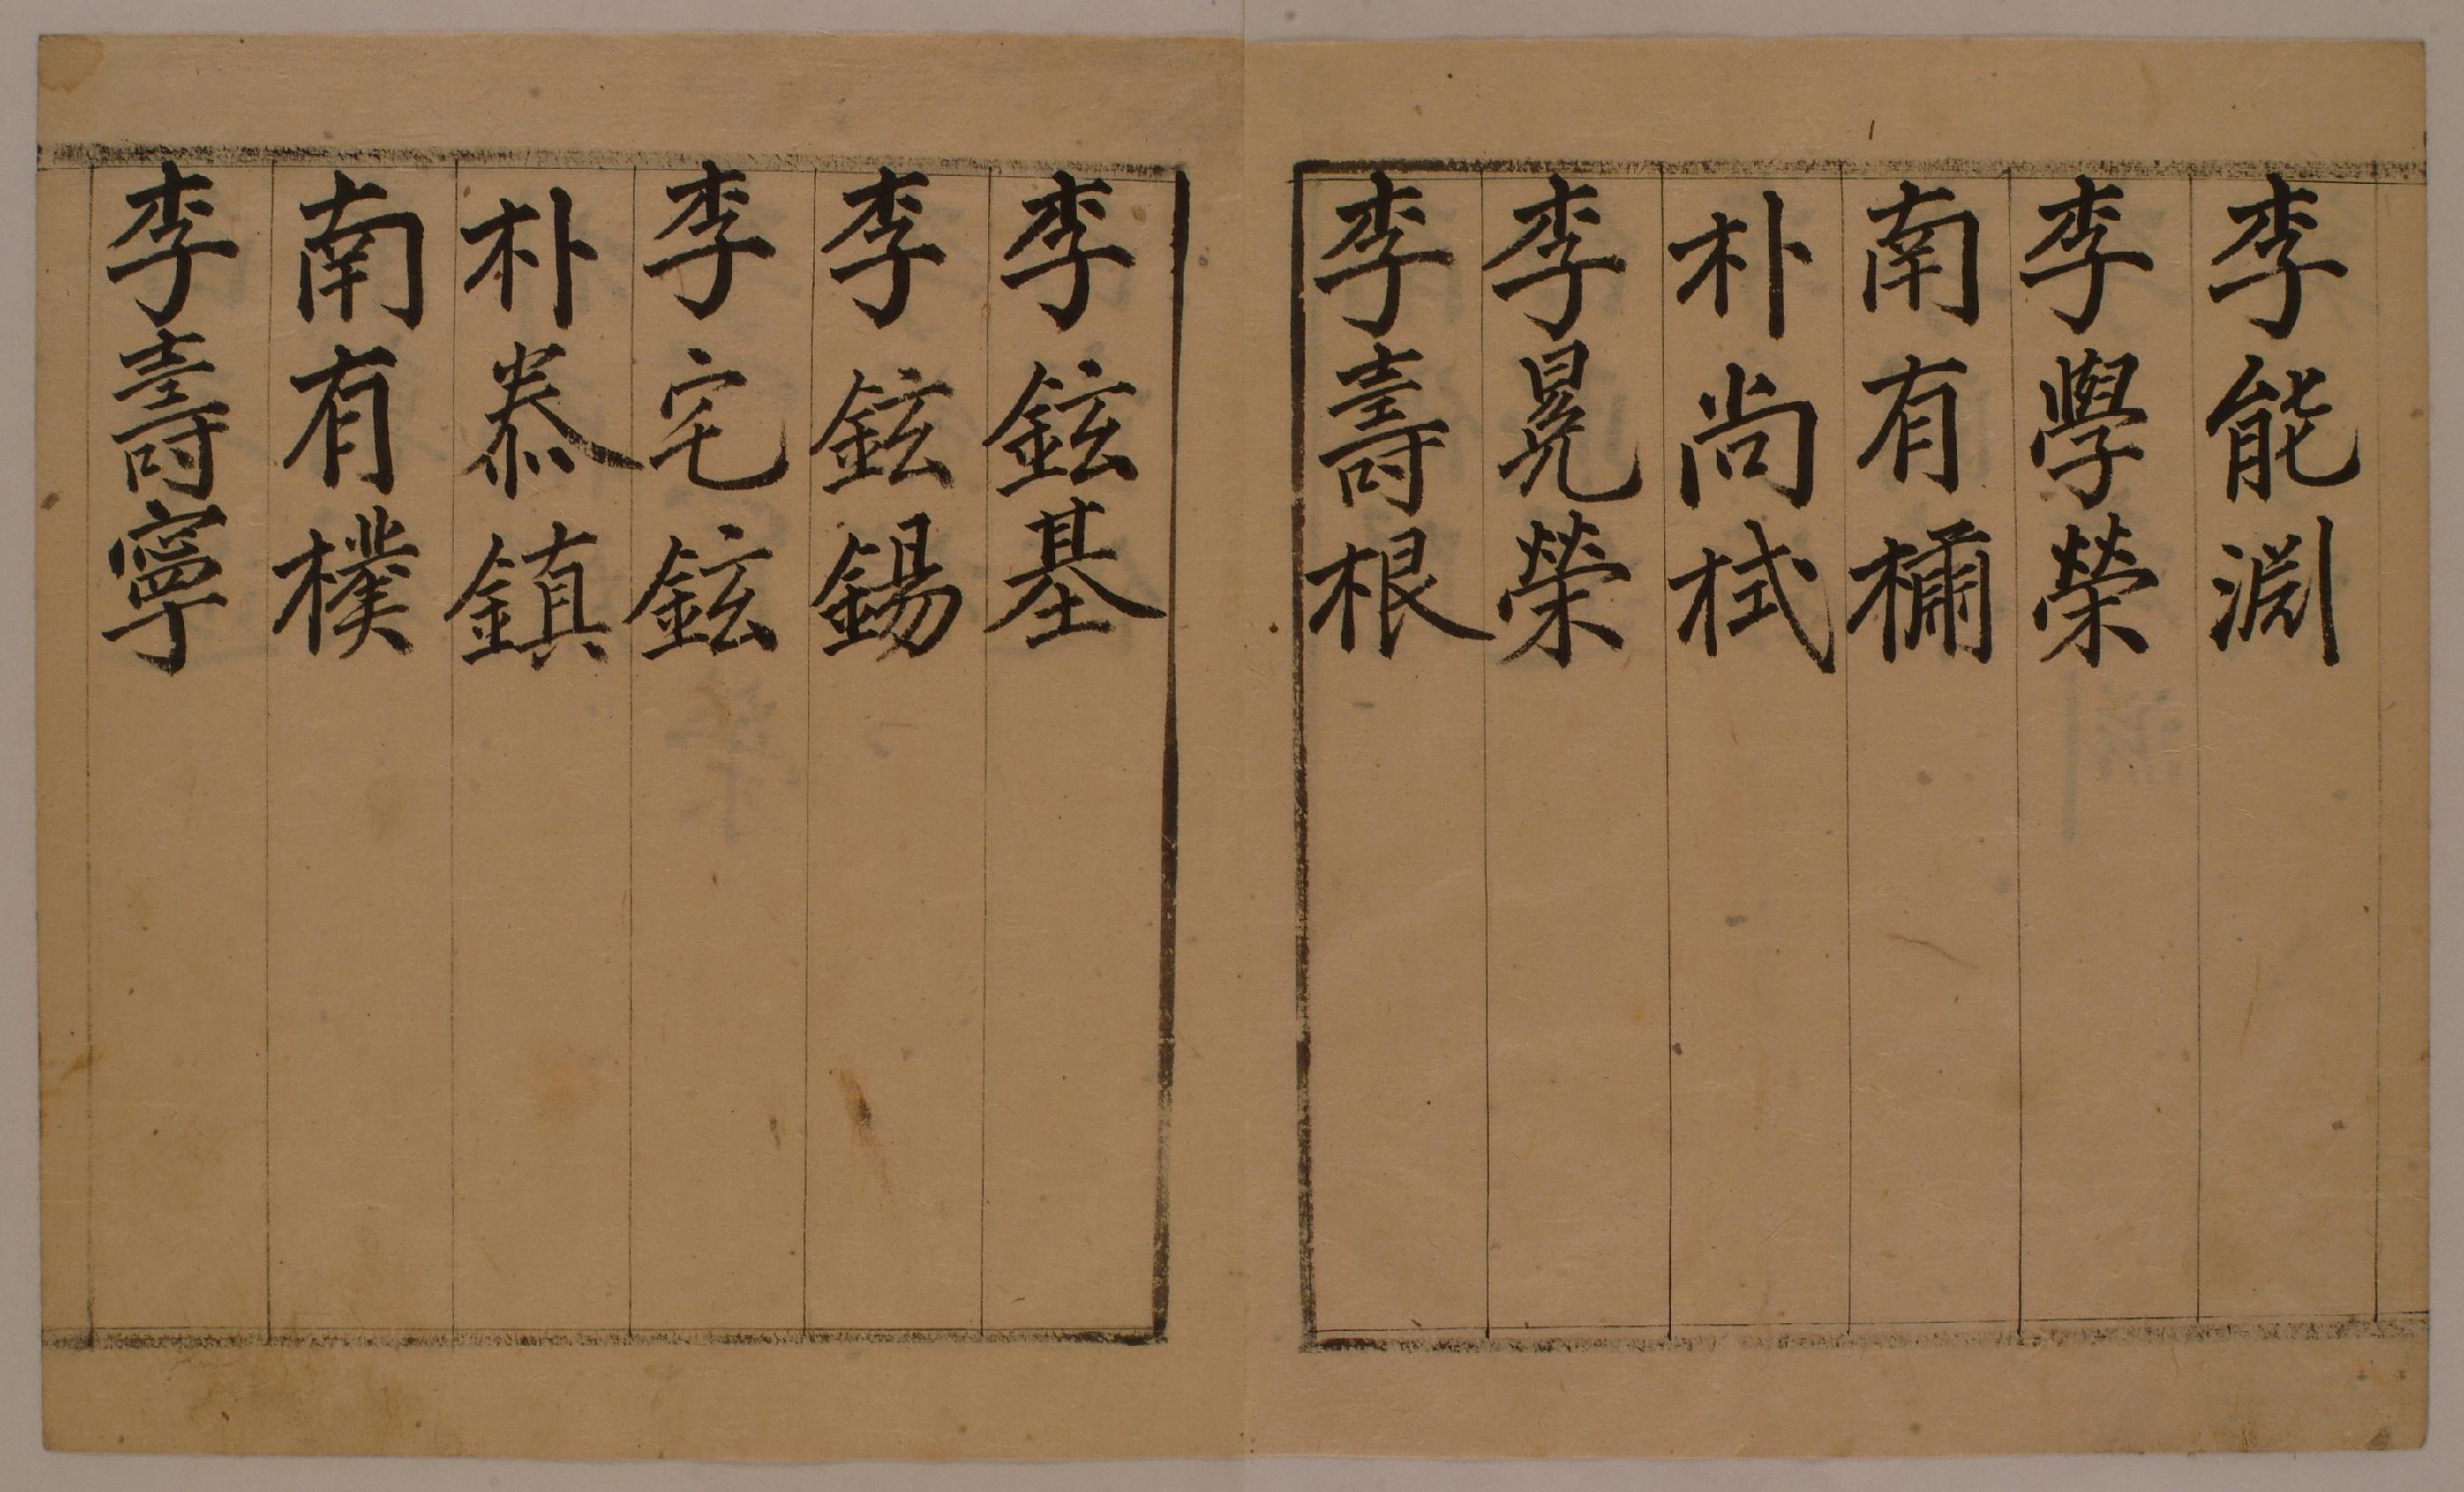 李能淵
李學榮
南有橚
朴尚栻
李晃榮
李壽根
李鉉基
李鉉錫
李宅鉉
朴泰鎮
南有樸
李壽寧